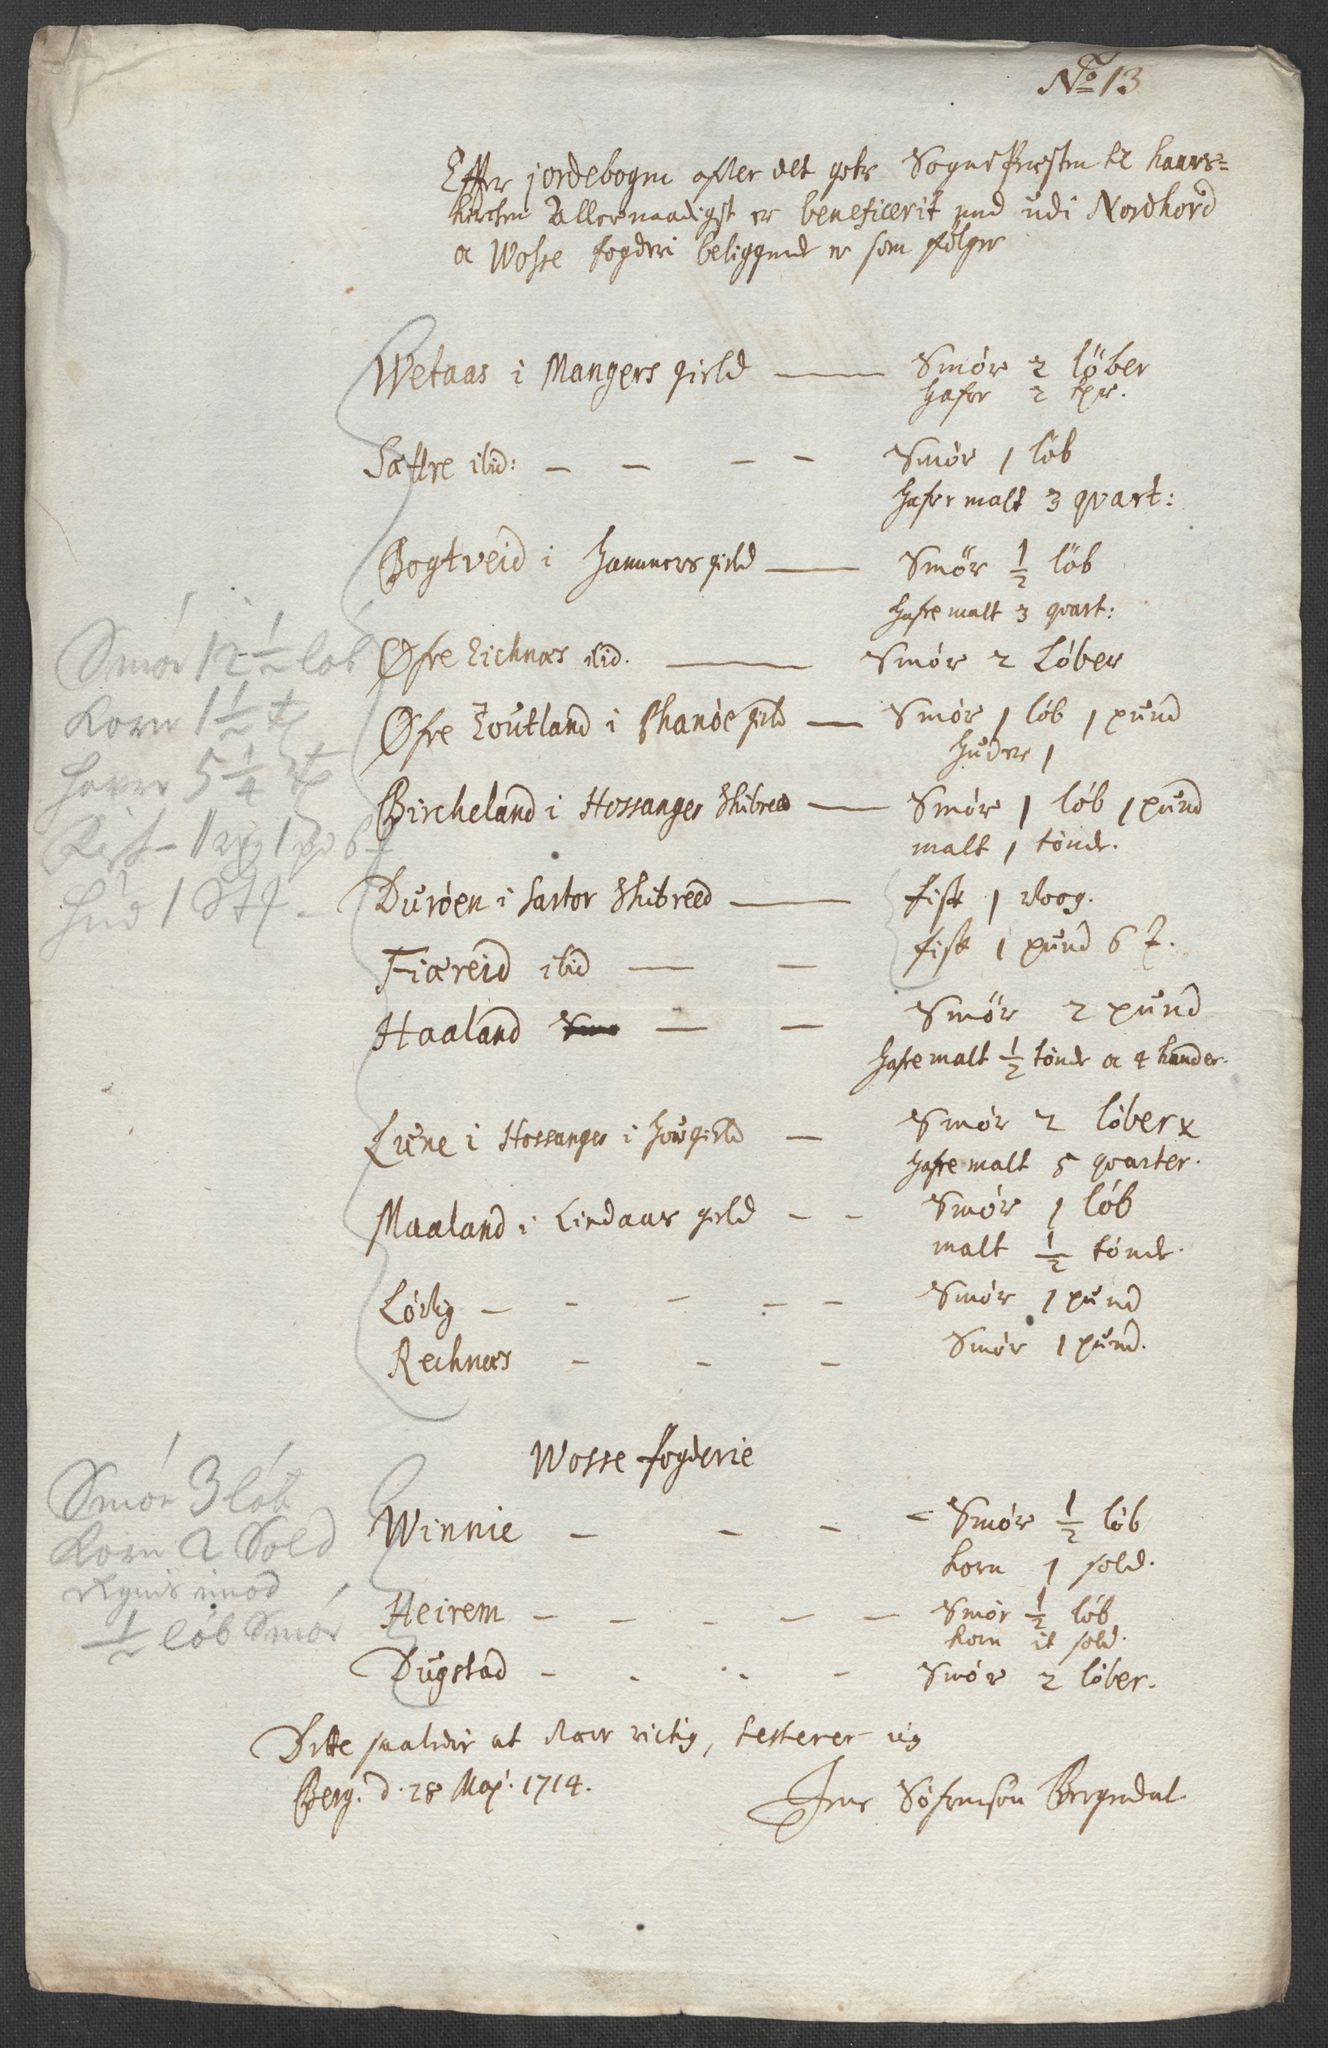 No 13
Effter jordebogen ofver det gods Sogne Presten til Kaars=
kirchen Allernaadigst er beneficerit med udi Nordhord
oc Wosse fogderi beliggende er som følger
Wetaas i Mangers gield — Smør 2 löber
hafre 2 tpr.
Sætre ibid: — — — — Smør 1 løb
hafer malt 3 qvart:
Bogtveid i Hammers gield — Smør 1/2 løb
hafre malt 3 qvart:
Øfre Eichnæs ibid. — Smør 2 Løber
Øfre Toutland i Phanöe gield — Smør 1 løb 1 pund
huder 1
Bircheland i Hossanger Skibred — Smør 1 løb 1 pund
malt 1 tønde.
Durøen i Sartor Skibreed — fisk 1 Woog.
Fiæreid ibid — — fisk 1 pund 6
Haaland — — Smör 2 pund
hafre malt 1/2 tønde oc 4 kander.
Lune i Hossanger i Hougield — Smør 2 løber x
hafre malt 5 qvarter.
Maaland i Lindaas gield — — Smør 1 løb
malt 1/2 tønde.
— — — — — Smør 1 pund
Rechnæs — — — Smør 1 pund.
Smør 12 1/2 løb
Korn 1 1/2 t
Haver 5 1/4 t
Fisk 1 1 6
Hud 1 Stk
Wosse fogderie
Winnie — — — — Smør 1/2 løb
korn 1 sold.
Heirem — — — — — Smør 1/2 løb
korn it sold.
Dugstad — — — — Smør 2 løber.
Smør 3 løb
Korn 2 Sold
Regnis imod
1/2 løb Smør
Dette saaledis at være rictig, testerer ieg
Berg. d. 28 Maj. 1714.
Jens Söfrensøn Bergendal